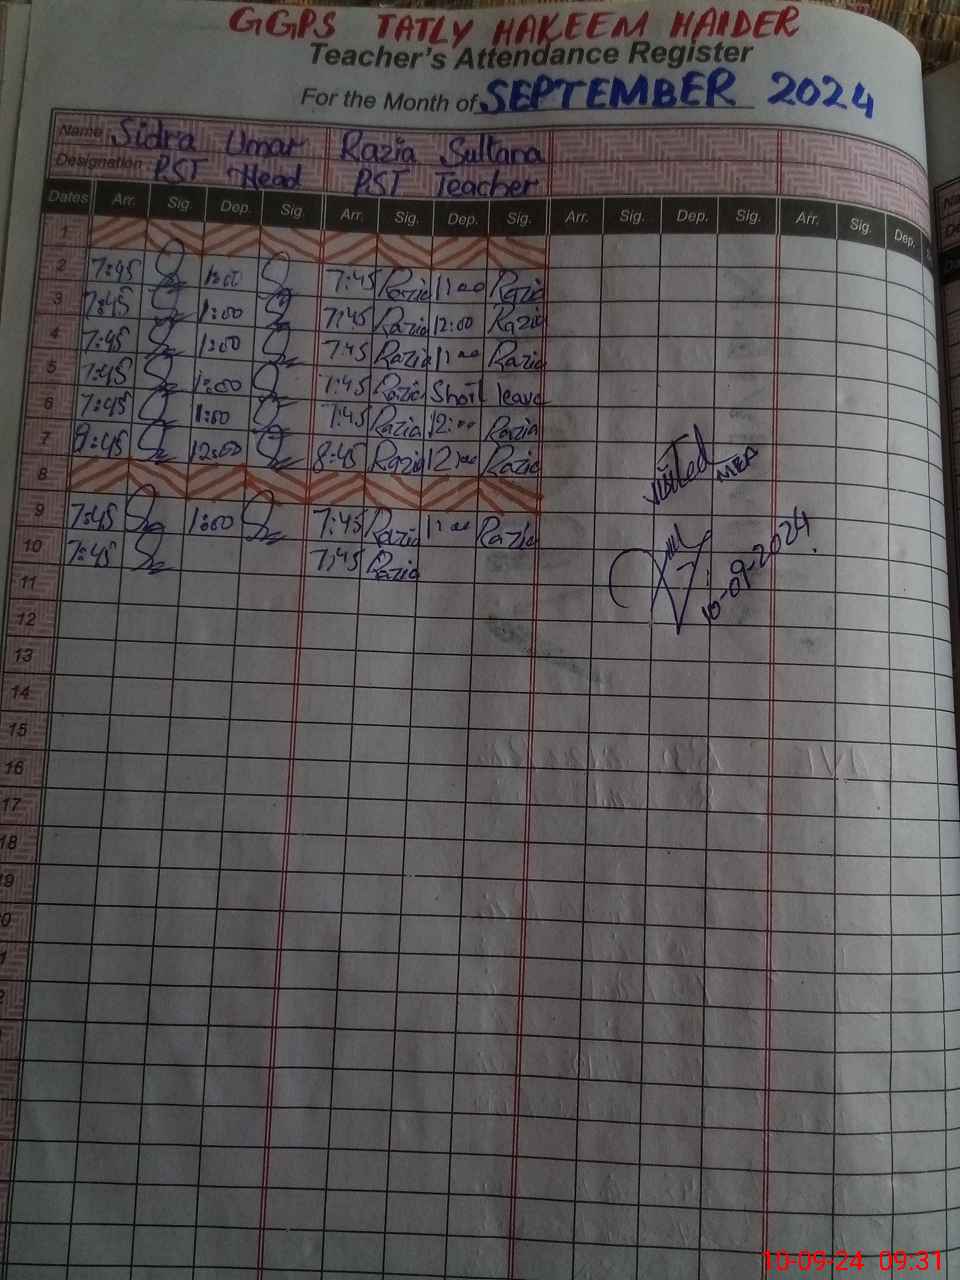 GGPS TATLY HAKEEM HAIDER
Teacher's Attendance Register
For the Month of SEPTEMBER 2024
Name Sidra Umar Razia Sultana
Designation PST Head PST Teacher
Dates Arr. Sig. Dep. Sig. Arr. Sig. Dep. Sig. Arr. Sig. Dep. Sig. Arr. Sig. Dep.
1
2 7:45 7:45 Razia 1:00 Razia
3 7:45 1:00 7:45 Razia 12:00 Razia
4 7:45 1:00 7:45 Razia 1:00 Razia
5 7:45 1:00 7:45 Razia Short leave
6 7:45 1:00 7:45 Razia 12:00 Razia
7 8:45 12:00 8:45 Razia 12:00 Razia
8
9 7:45 1:00 7:45 Razia 1:00 Razia
10 7:45 7:45 Razia
11
12
13
14
15
16
17
18
Visited
MEA
10-09-2024
10-09-24 09:31